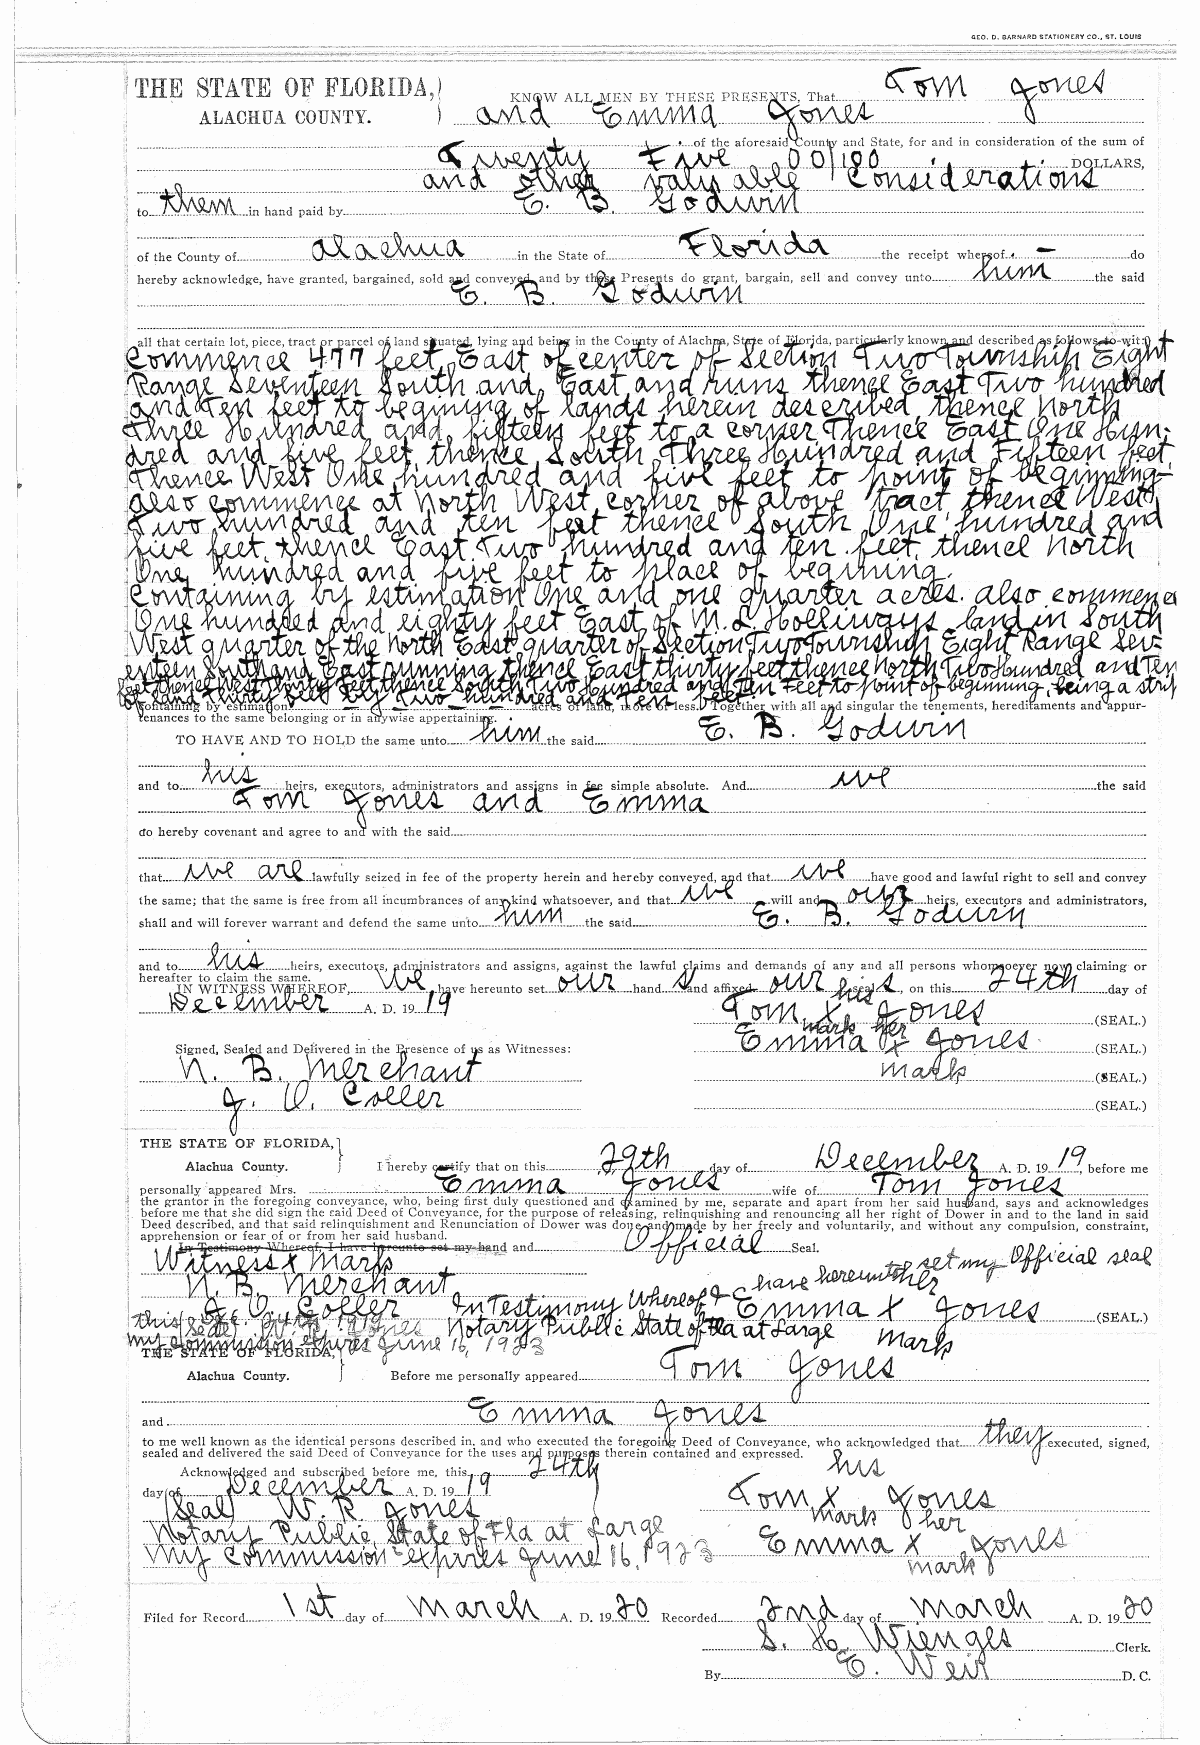 GEO. D. BARNARD STATIONERY CO., ST. LOUIS
THE STATE OF FLORIDA,
ALACHUA COUNTY.
KNOW ALL MEN BY THESE PRESENTS, That Tom Jones
and Emma Jones
of the aforesaid County and State, for and in consideration of the sum of
Twenty Five 00/100 DOLLARS,
and other valuable Considerations
to them in hand paid by E. B. Godwin
of the County of Alachua in the State of Florida the receipt whereof do
hereby acknowledge, have granted, bargained, sold and conveyed, and by these Presents do grant, bargain, sell and convey unto him the said
E. B. Godwin
all that certain lot, piece, tract or parcel of land situated, lying and being in the County of Alachua, State of Florida, particularly known and described as follows, to-wit:
Commence 477 feet East of center of Section Two Township Eight
Range Seventeen South and East and runs thence East Two hundred
and Ten feet to begining of lands herein described thence North
Three Hundred and fifteen feet to a corner Thence East One Hun-
dred and five feet, thence South Three Hundred and Fifteen feet,
Thence West One hundred and five feet to point of beginning-
also commence at North West corner of above tract thence West
Two hundred and ten feet thence South One hundred and
five feet, thence East Two hundred and ten feet, thence North
One hundred and five feet to place of begining.
Containing by estimation One and one quarter acres. also commence
One hundred and eighty feet East of M. L. Holliways land in South
West quarter of the North East quarter of Section Two Township Eight Range Sev-
enteen South and East running thence East thirty feet thence North Two Hundred and Ten
feet thence West thirty feet thence South Two Hundred and Ten Feet to point of beginning, being a strip
thirty feet by Two hundred and ten feet
Containing by estimation acres of land, more or less. Together with all and singular the tenements, hereditaments and appur-
tenances to the same belonging or in anywise appertaining.
TO HAVE AND TO HOLD the same unto him the said E. B. Godwin
and to his heirs, executors, administrators and assigns in fee simple absolute. And we the said
Tom Jones and Emma
do hereby covenant and agree to and with the said
that we are lawfully seized in fee of the property herein and hereby conveyed, and that we have good and lawful right to sell and convey
the same; that the same is free from all incumbrances of any kind whatsoever, and that we will and our heirs, executors and administrators,
shall and will forever warrant and defend the same unto him the said E. B. Godwin
and to his heirs, executors, administrators and assigns, against the lawful claims and demands of any and all persons whomsoever now claiming or
hereafter to claim the same.
IN WITNESS WHEREOF, We have hereunto set our hand s and affixed our seal s, on this 24th day of
December A. D. 1919
his
Tom x Jones (SEAL.)
mark her
Emma x Jones (SEAL.)
Signed, Sealed and Delivered in the Presence of us as Witnesses:
N. B. Merchant mark (SEAL.)
J. O. Coller (SEAL.)
THE STATE OF FLORIDA,
Alachua County. I hereby certify that on this 29th day of December A. D. 1919, before me
personally appeared Mrs. Emma Jones wife of Tom Jones
the grantor in the foregoing conveyance, who, being first duly questioned and examined by me, separate and apart from her said husband, says and acknowledges
before me that she did sign the said Deed of Conveyance, for the purpose of releasing, relinquishing and renouncing all her right of Dower in and to the land in said
Deed described, and that said relinquishment and Renunciation of Dower was done and made by her freely and voluntarily, and without any compulsion, constraint,
apprehension or fear of or from her said husband.
In Testimony Whereof, I have hereunto set my hand and Official Seal.
Witness x Mark
N. B. Merchant have hereunto set my Official seal
J. O. Coller In Testimony Whereof I her
Emma x Jones (SEAL)
this Dec. 24th 1919
(Seal) W. R. Jones Notary Public State of Fla at Large mark
my Commission expires June 16, 1923
THE STATE OF FLORIDA,
Alachua County. Before me personally appeared Tom Jones
and Emma Jones
to me well known as the identical persons described in, and who executed the foregoing Deed of Conveyance, who acknowledged that they executed, signed,
sealed and delivered the said Deed of Conveyance for the uses and purposes therein contained and expressed.
Acknowledged and subscribed before me, this 24th his
day of December A. D. 1919 Tom x Jones
(Seal) W. R. Jones mark her
Notary Public, State of Fla at Large Emma x Jones
My Commission expires June 16, 1923 mark
Filed for Record 1st day of March A. D. 1920 Recorded 2nd day of March A. D. 1920
S. H. Wienges Clerk.
By E. Weir D. C.